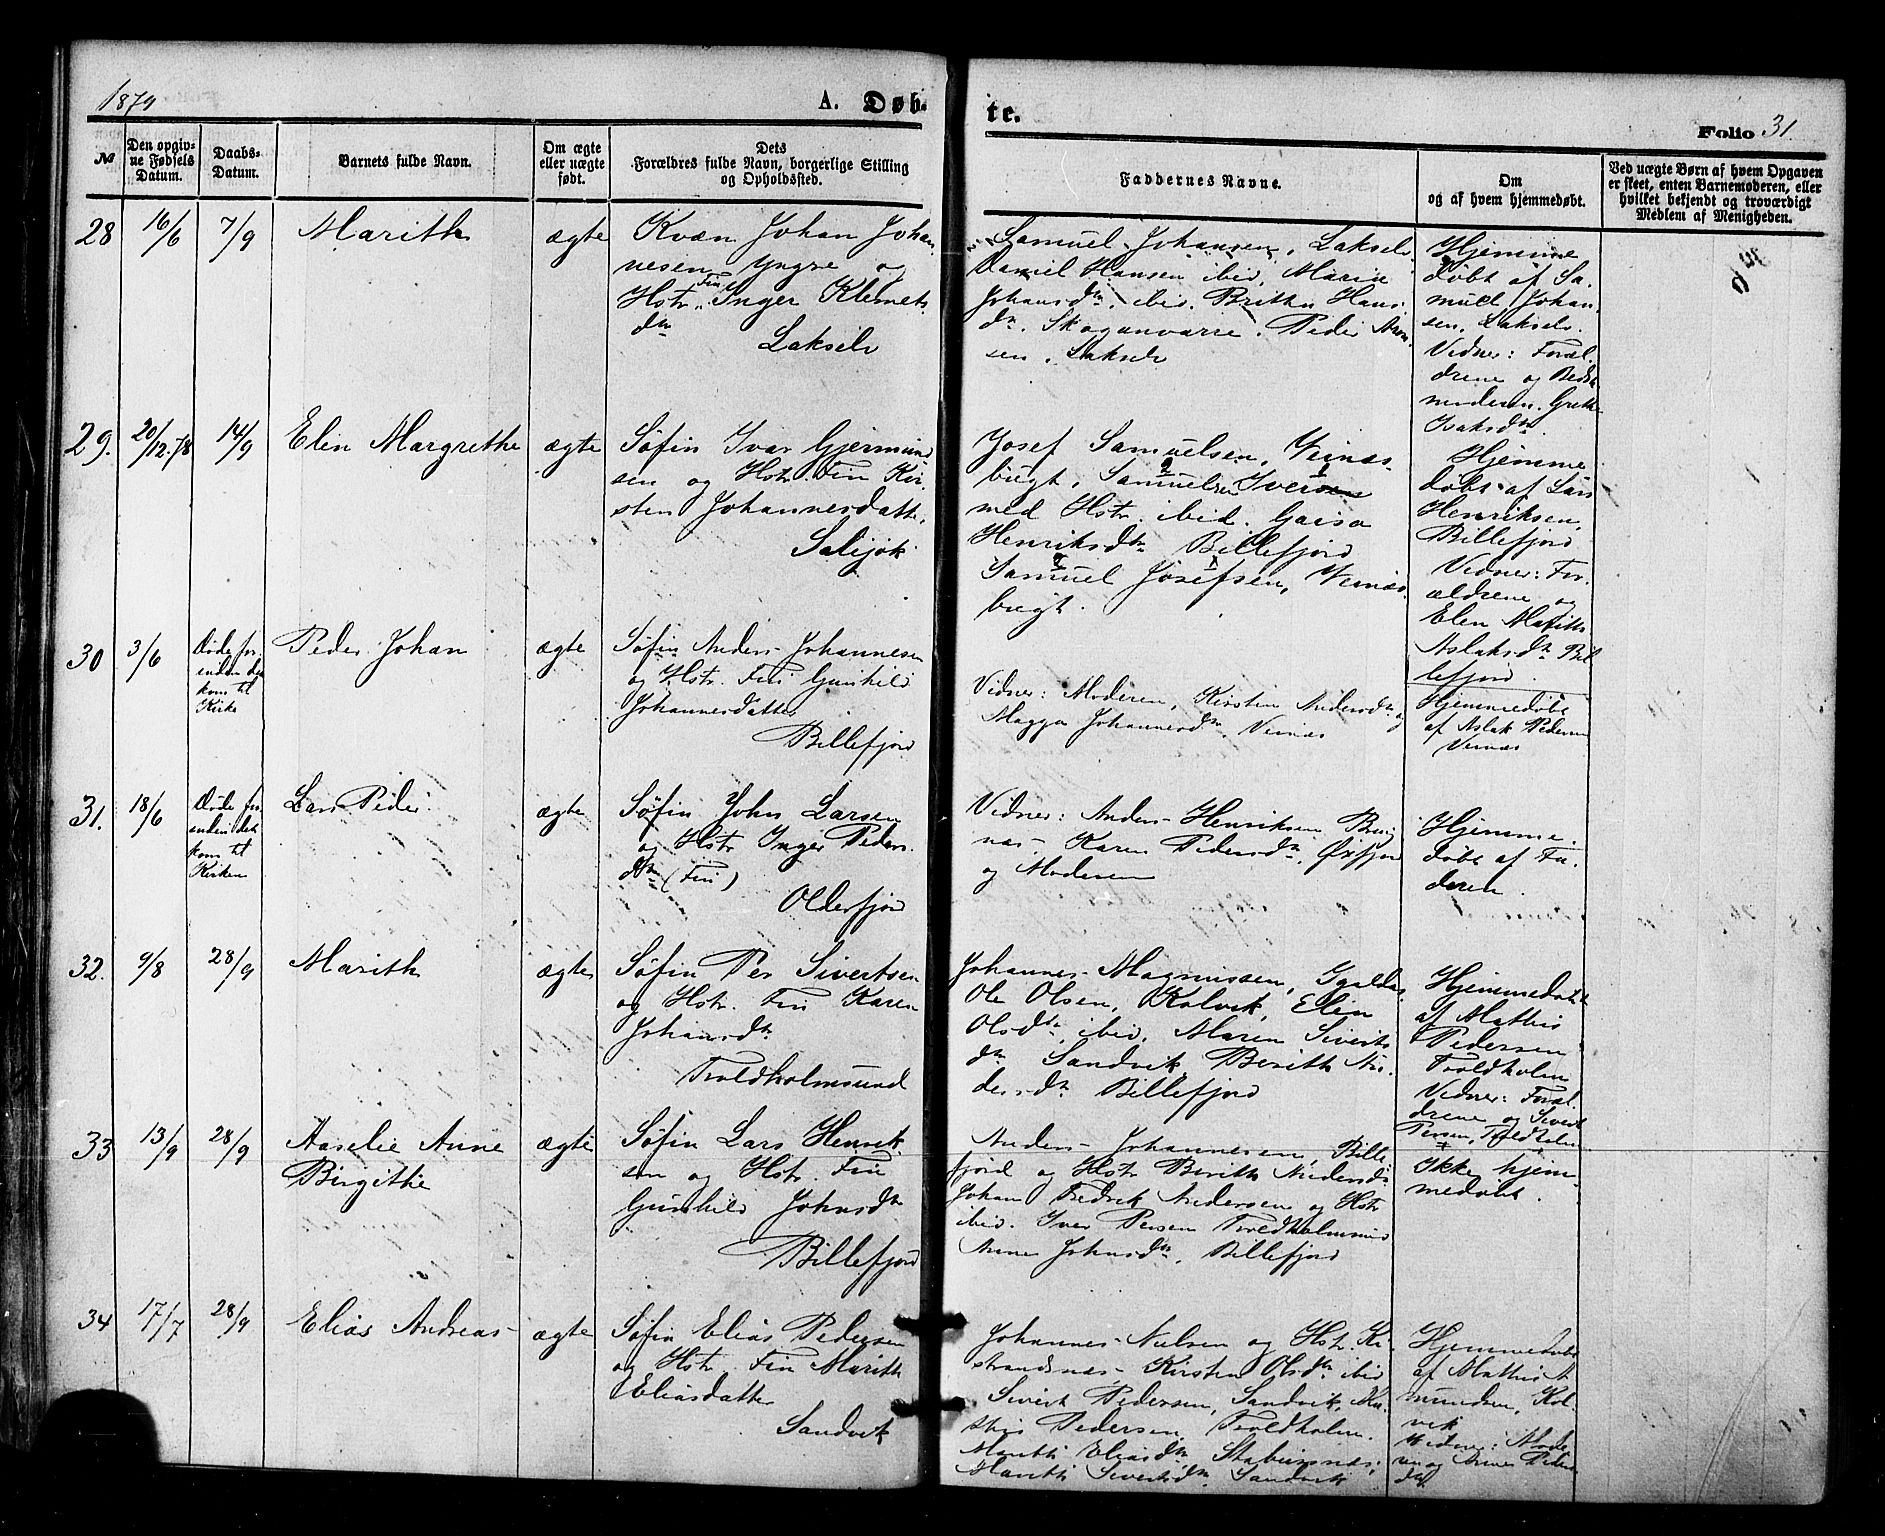 1879
A. Døb-
te.
Folio 31
№
Den opgiv-
ne Fødsels
Datum.
Daabs-
Datum.
Barnets fulde Navn.
Om ægte
eller uægte
født.
Dets
Forældres fulde Navn, borgerlige Stilling
og Opholdssted.
Faddernes Navne.
Om
og af hvem hjemmedøbt.
Ved uægte Børn af hvem Opgaven
er skeet, enten Barnemoderen, eller
hvilket bekjendt og troværdigt
Medlem af Menigheden.
28
16/6
7/9
Marith
ægte
Kvæn Johan Johan
nesen Yngre og
Hstr. Fin Inger Klemets
dtr
Lakselv
Samuel Johansen, Lakselv
Daniel Hansen ibid, Marie
Johansdtr. ibid. Britha Hans
dtr. Skoganvarre. Peder
sen. Lakselv
Hjemme
døbt af Sa-
muel Johan
sen, Lakselv.
Vidner: Foræl-
drene og Bedste
moderen Grethe
Isaksdtr.
29.
20/12.78
14/9
Elen Margrethe
ægte
Søfin Ivar Gjermund
sen og Hstr. Fin Kir-
sten Johannesdatter,
Salijok
Josef Samuelsen, Veinæs-
bugt, Samuelsen Iver
med Hstr. ibid. Gaisa
Henriksdtr Billefjord
Samuel Josefsen, Veinæs-
bugt.
Hjemme
døbt af Lars
Henriksen,
Billefjord
Vidner: For-
ældrene og
Elen Marith
Aslaksdtr Bil
lefjord.
30
3/6
Døde for-
inden det
kom til
Kirke
Peder Johan
ægte
Søfin Anders Johannesen
og Hstr. Fin Gunhild
Johannesdatter
Billefjord
Vidner: Moderen, Kirsten Andersdtr og
Magga Johannesdtr. Veinæs
Hjemmedøbt
af Aslak Pedersen
Veinæs
31.
18/6
Døde for
inden det
kom til
Kirken
Lars Peder.
ægte
Søfin John Larsen
og Hstr Inger Peders
dtr (Fin)
Olderfjord
Vidner: Anders Henriksen
næs - Karen Pedersdtr,
og Moderen
Hjemme
døbt af Fa-
deren.
32.
9/8
28/9
Marith
ægte
Søfin Per Sivertsen
og Hstr. Fin Karen
Johansdtr
Troldholmsund
Johannes Magnussen,
Ole Olsen, Kolvik, Elen
Olsdtr ibid, Maren Siverts
dtr Sandvik, Berith An-
dersdtr Billefjord
Hjemmedøbt
af Mathis
Pedersen
Troldholm
Vidner: Foræl-
drene og Sivert
Persen, Troldholm
33
13/9
28/9
Aaselie Anne
Birgithe
ægte
Søfin Lars Henrik
sen og Hstr. Fin
Gunhild Johnsdtr
Billefjord
Anders Johannesen, Bille
fjord og Hstr Berith Andersdtr
Johan Fredrik Andersen og Hstr
ibid. Iver Persen Troldholmsund
Anne Johnsdtr, Billefjord
Ikke hjem-
medøbt.
34
17/7
28/9
Elias Andreas
ægte
Søfin Elias Pedersen
og Hstr. Fin Marith
Eliasdatter
Sandvik
Johannes Nielsen og Hstr. Ki-
strandsnæs, Kirsten Olsdtr ibid
Sivert Pedersen, Sandvik,
Pedersen, Troldholm.
Marith Eliasdtr Stabursnæs,
Marith Sivertsdtr, Sandvik
Hjemmedøbt
af Mathis A
mundsen, Kol
vik
Vidner: Mode
ren og Anne Peders
dtr